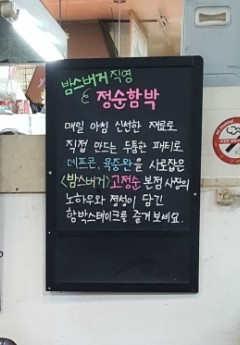 밤스버거 직영
& 정순함박
매일 아침 신선한 재료로
직접 만드는 두툼한 패티로
데프콘, 육중완을 사로잡은
<밤스버거> 고정순 본점 사장의
노하우와 정성이 담긴
함박스테이크를 즐겨 보세요.